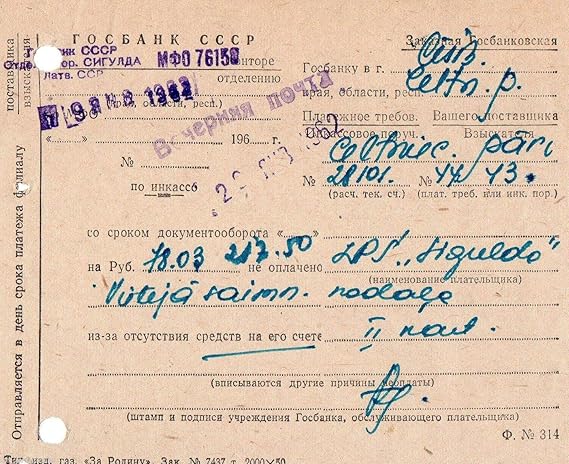 ГОСБАНК СССР
Заказная Госбанковская
банк СССР
гор. СИГУЛДА МФО 76150
Латв. ССР
конторе
отделению
Госбанку в г.
края, области, респ.)
19 ЯНВ 1962
(края, области, респ.)
Вечерняя почта
Платежное требов. Вашего поставщика
Инкассовое поруч. Взыскателя
„ “ 196 г.
Celtniec. pārv.
№
№ 28101. № 44 43.
(расч. тек. сч.) (плат. треб. или инк. пор.)
по инкассо
со сроком документооборота „ “
на Руб. 18.03 217.50 не оплачено LPS „Sigulda“
(наименование плательщика)
saimn. nodaļa
из-за отсутствия средств на его счете
II
(вписываются другие причины неоплаты)
(штамп и подписи учреждения Госбанка, обслуживающего плательщика)
Ф. № 314
изд. газ. „За Родину“. Зак. № 7437 т. 2000×50
поставщика
взыскателя
Отправляется в день срока платежа филиалу